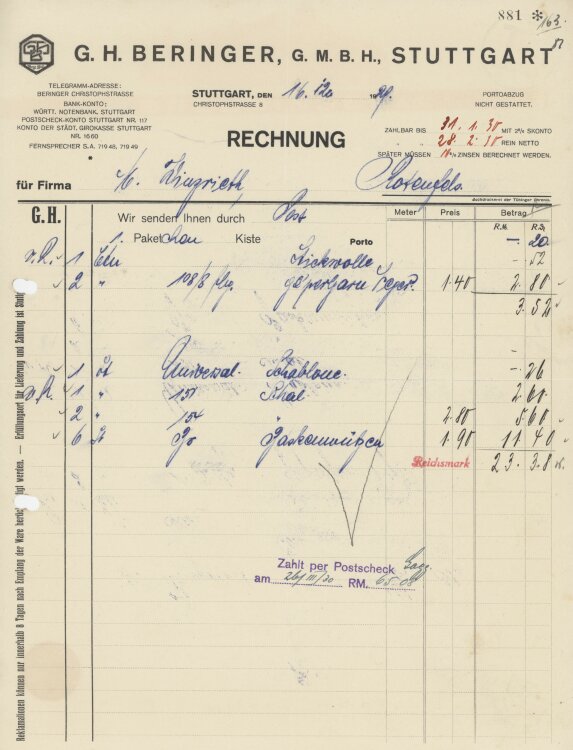 881 * 163
G. H. BERINGER, G. M. B. H., STUTTGART
TELEGRAMM-ADRESSE:
BERINGER CHRISTOPHSTRASSE
BANK-KONTO:
WÜRTT. NOTENBANK, STUTTGART
POSTSCHECK-KONTO STUTTGART NR. 117
KONTO DER STÄDT. GIROKASSE STUTTGART
NR. 1660
FERNSPRECHER S.A. 719 48, 719 49
*
STUTTGART, DEN 16. 1929.
CHRISTOPHSTRASSE 8
PORTOABZUG
NICHT GESTATTET.
RECHNUNG
ZAHLBAR BIS 31. 1. 30 MIT 2% SKONTO
28. 2. 30 REIN NETTO
SPÄTER MÜSSEN % ZINSEN BERECHNET WERDEN.
für Firma Rosenfeld
G.H. Wir senden Ihnen durch Post Meter Preis Betrag
R.M. R.₰
1 Paket Kiste Porto — 20
1 Stickwolle — 52
2 " 108/8 1.40 2 80
3 52
1 Universal- Schablone — 26
1 " 151 Schal 2 60
2 " 154 2.80 5 60
6 1.90 11 40
Reichsmark 23 38
Zahlt per Postscheck
am 26/III/30 RM. 65.08
Reklamationen können nur innerhalb 8 Tagen nach Empfang der Ware
werden. — Erfüllungsort für Lieferung und Zahlung ist Stuttg